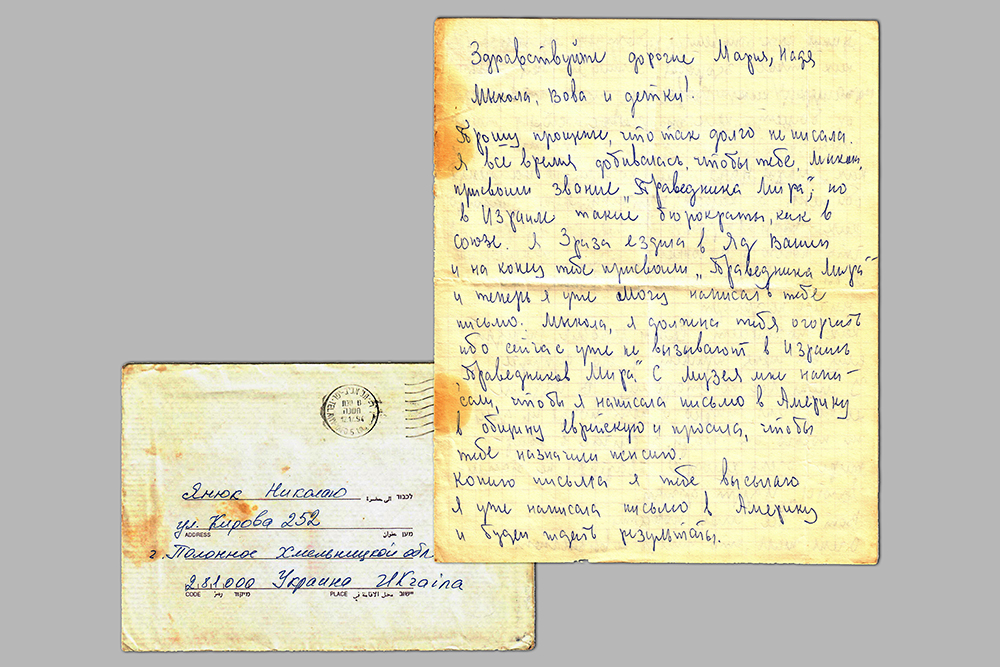 Здравствуйте дорогие Мария, Надя
Микола, Вова и детки!
Прошу прощение, что так долго не писала.
Я все время добивалась, чтобы тебе, Микола,
присвоили звание „Праведника Мира", но
в Израиле такие бюрократы, как в
союзе. Я 3 раза ездила в Яд Вашем
и на конец тебе присвоили „Праведника Мира"
и теперь я уже могу написать тебе
письмо. Микола, я должна тебя огорчить
ибо сейчас уже не вызывают в Израиль
„Праведников Мира". С музея мне напи-
сали, чтобы я написала письмо в Америку
в общину еврейскую и просила, чтобы
тебе назначили пенсию.
Копию письма я тебе высылаю
Я уже написала письмо в Америку
и будем ждать результаты.
Янюк Николаю
לכבוד الى حضرة
ул. Кирова 252
ADDRESS מען عنوان
г Полонное Хмельницкой обл.
281000 Украина UKraina
CODE מיקוד رمز PLACE ישוב محل الاقامة في